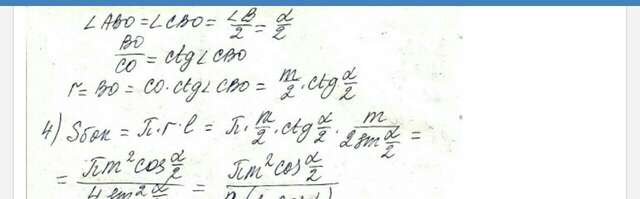 ∠ABO = ∠CBO = ∠B/2 = α/2
BO/CO = ctg∠CBO
r = BO = CO · ctg∠CBO = m/2 · ctg α/2
4) Sбок = π · r · l = π · m/2 · ctg α/2 · m/(2 sin α/2) =
= πm² cos α/2 / (4 sin² α/2) = πm² cos α/2